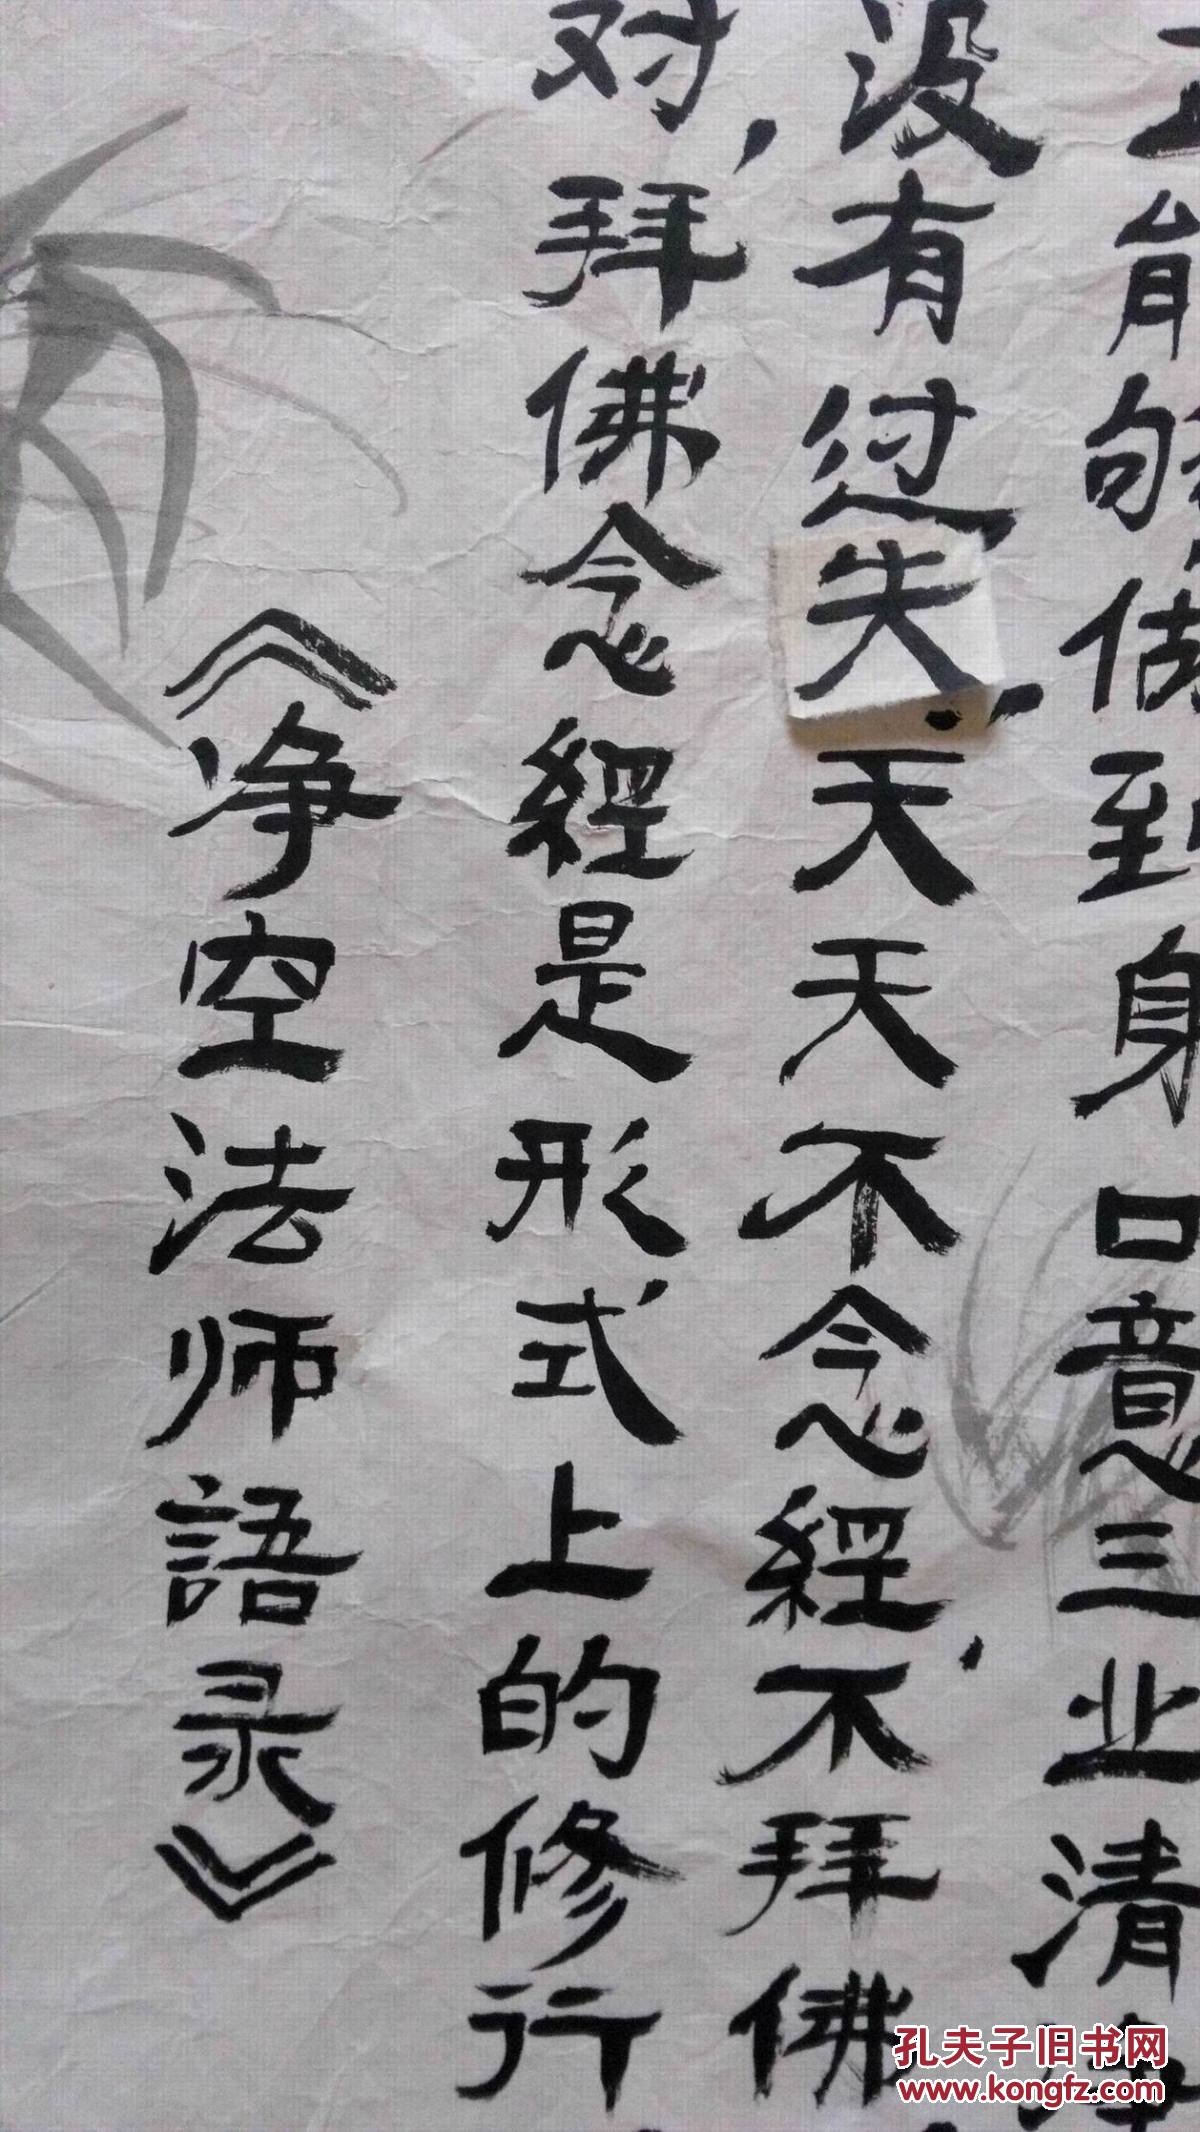 能够做到身口意三业清净
没有过失.天天不念經,不拜佛,
对,拜佛念經是形式上的修行
《净空法师語录》
孔夫子旧书网
www.kongfz.com